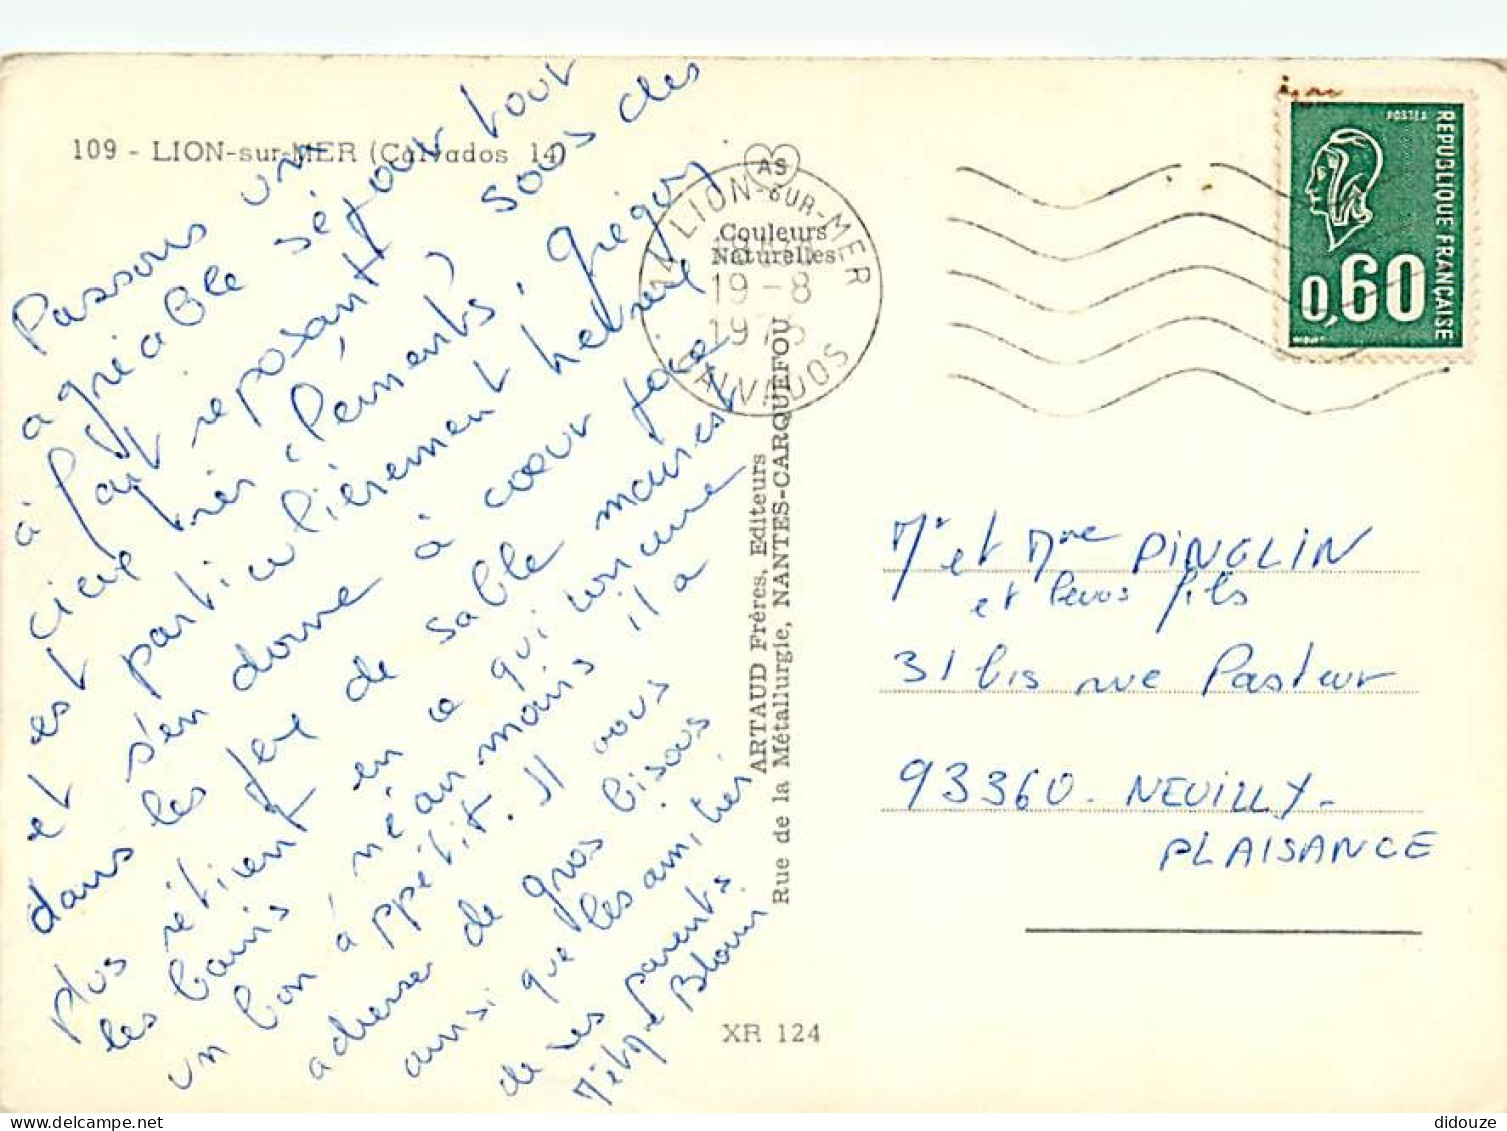 109 - LION-sur-MER (Calvados 14)
Passons un
agréable séjour tout
à fait reposant sous des
cieux très cléments. Grégory
est particulièrement heureux
et s'en donne à cœur joie
dans les jeux de sable mais est
plus rétissant en ce qui concerne
les bains, néanmoins il a
un bon appétit. Il vous
adresse de gros bisous
ainsi que les amitiés
de ses parents
M et Mme Blouin
14 LION-SUR-MER
AS
19-8
1975
CALVADOS
Couleurs
Naturelles
ARTAUD Frères, Editeurs
Rue de la Métallurgie, NANTES-CARQUEFOU
XR 124
POSTES
REPUBLIQUE FRANÇAISE
0,60
Mr et Mme PINGLIN
et leurs fils
31 bis rue Pasteur
93360 - NEUILLY -
PLAISANCE
didouze